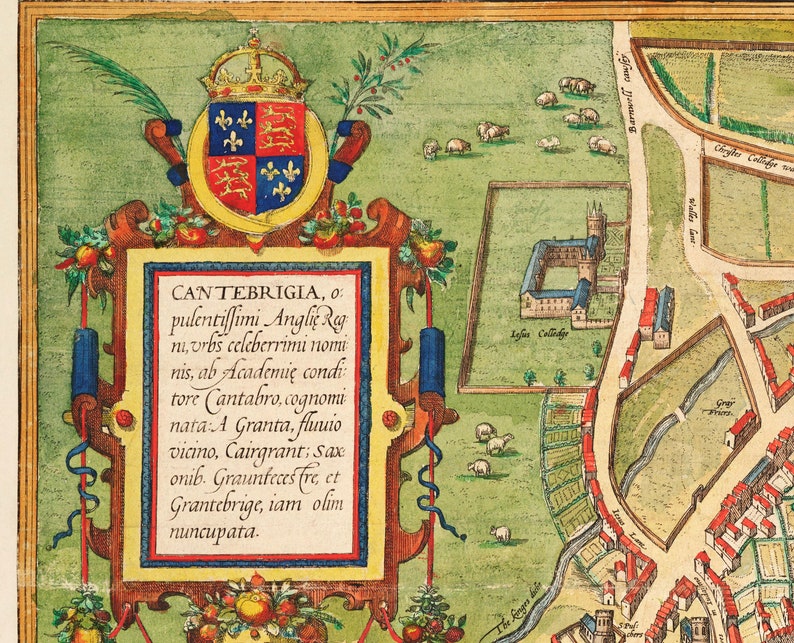 CANTEBRIGIA, o-
pulentissimi Anglię Reg-
ni, vrbs celeberrimi nomi
nis, ab Academię condi-
tore Cantabro, cognomi
nata: A Granta, fluuio
vicino, Cairgrant; Sax-
onib. Grauntecestre, et
Grantebrige, iam olim
nuncupata.
Iesus Colledge
Barnwell
Christes Colledge wa
Walles lane
Gray
friers.
Iesus Lane
The kinges
S. Pul-
chers